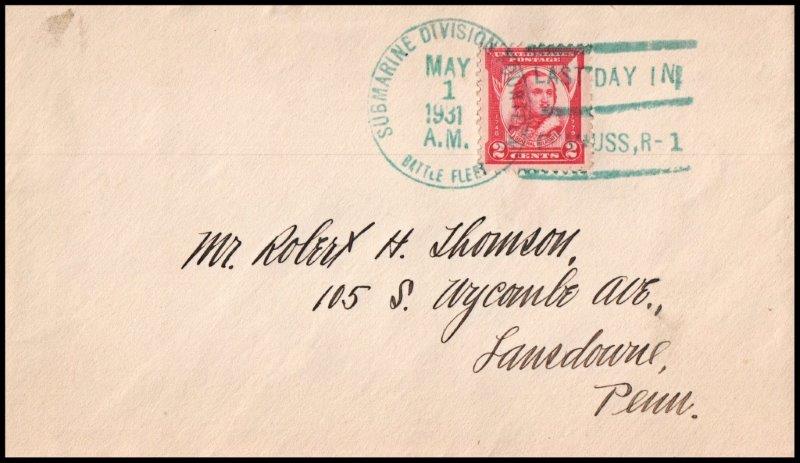 SUBMARINE DIVISION
MAY
1
1931
A.M.
BATTLE FLEET
UNITED STATES
POSTAGE
2 CENTS 2
LAST DAY IN
HUSS, R-1
Mr. Robert H. Thomson,
105 S. Wycombe Ave.,
Lansdowne,
Penn.